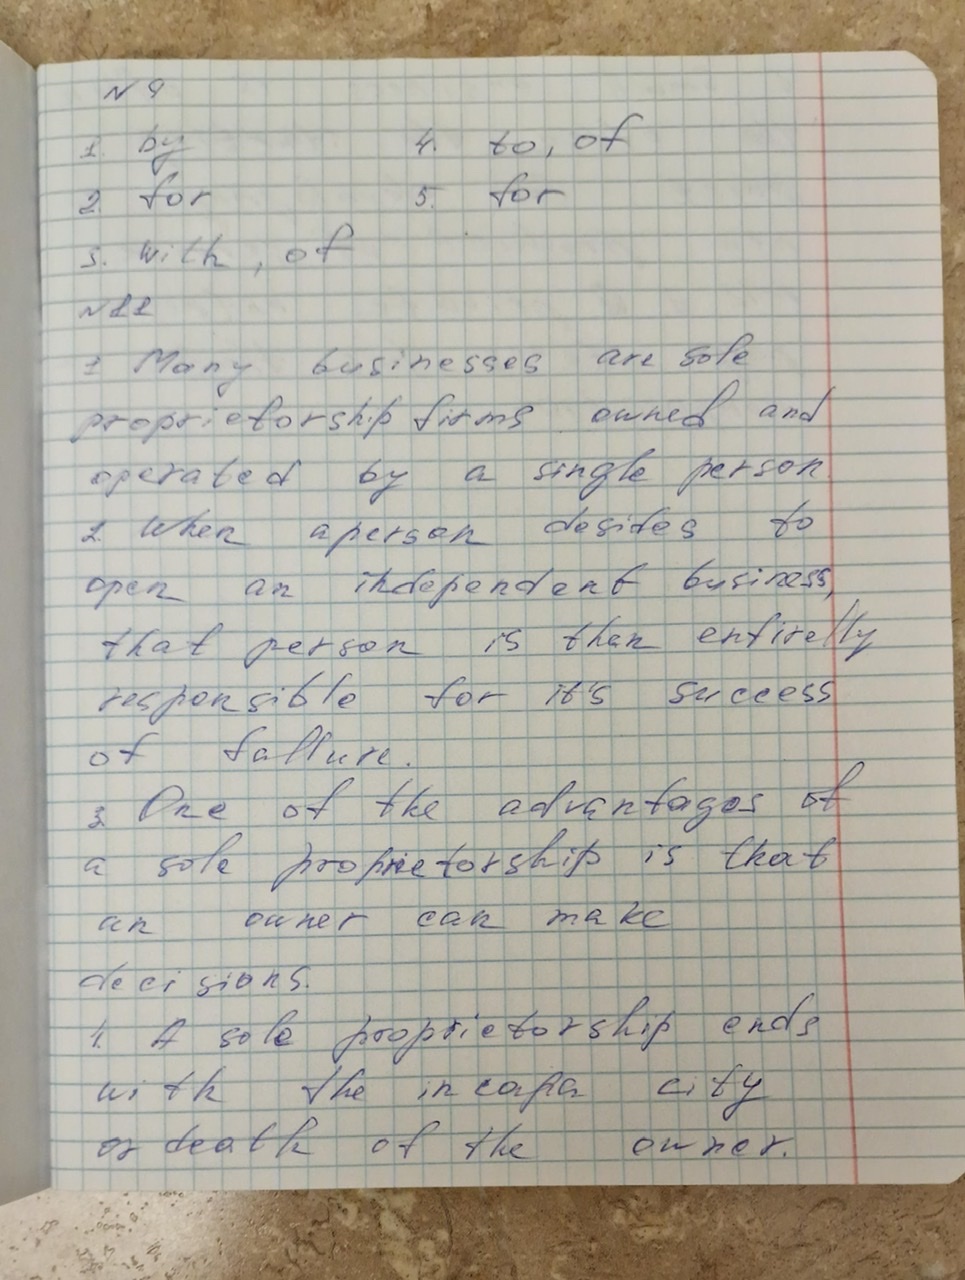 N 9
1. by 4. to, of
2. for 5. for
3. with, of
N11
1 Many businesses are sole
proprietorship firms owned and
operated by a single person
2. When a person desides to
open an independent business,
that person is then entirelly
responsible for it's success
of failure.
3. One of the advantages of
a sole proprietorship is that
an owner can make
decisions.
4. A sole proprietorship ends
with the incapa city
or death of the owner.